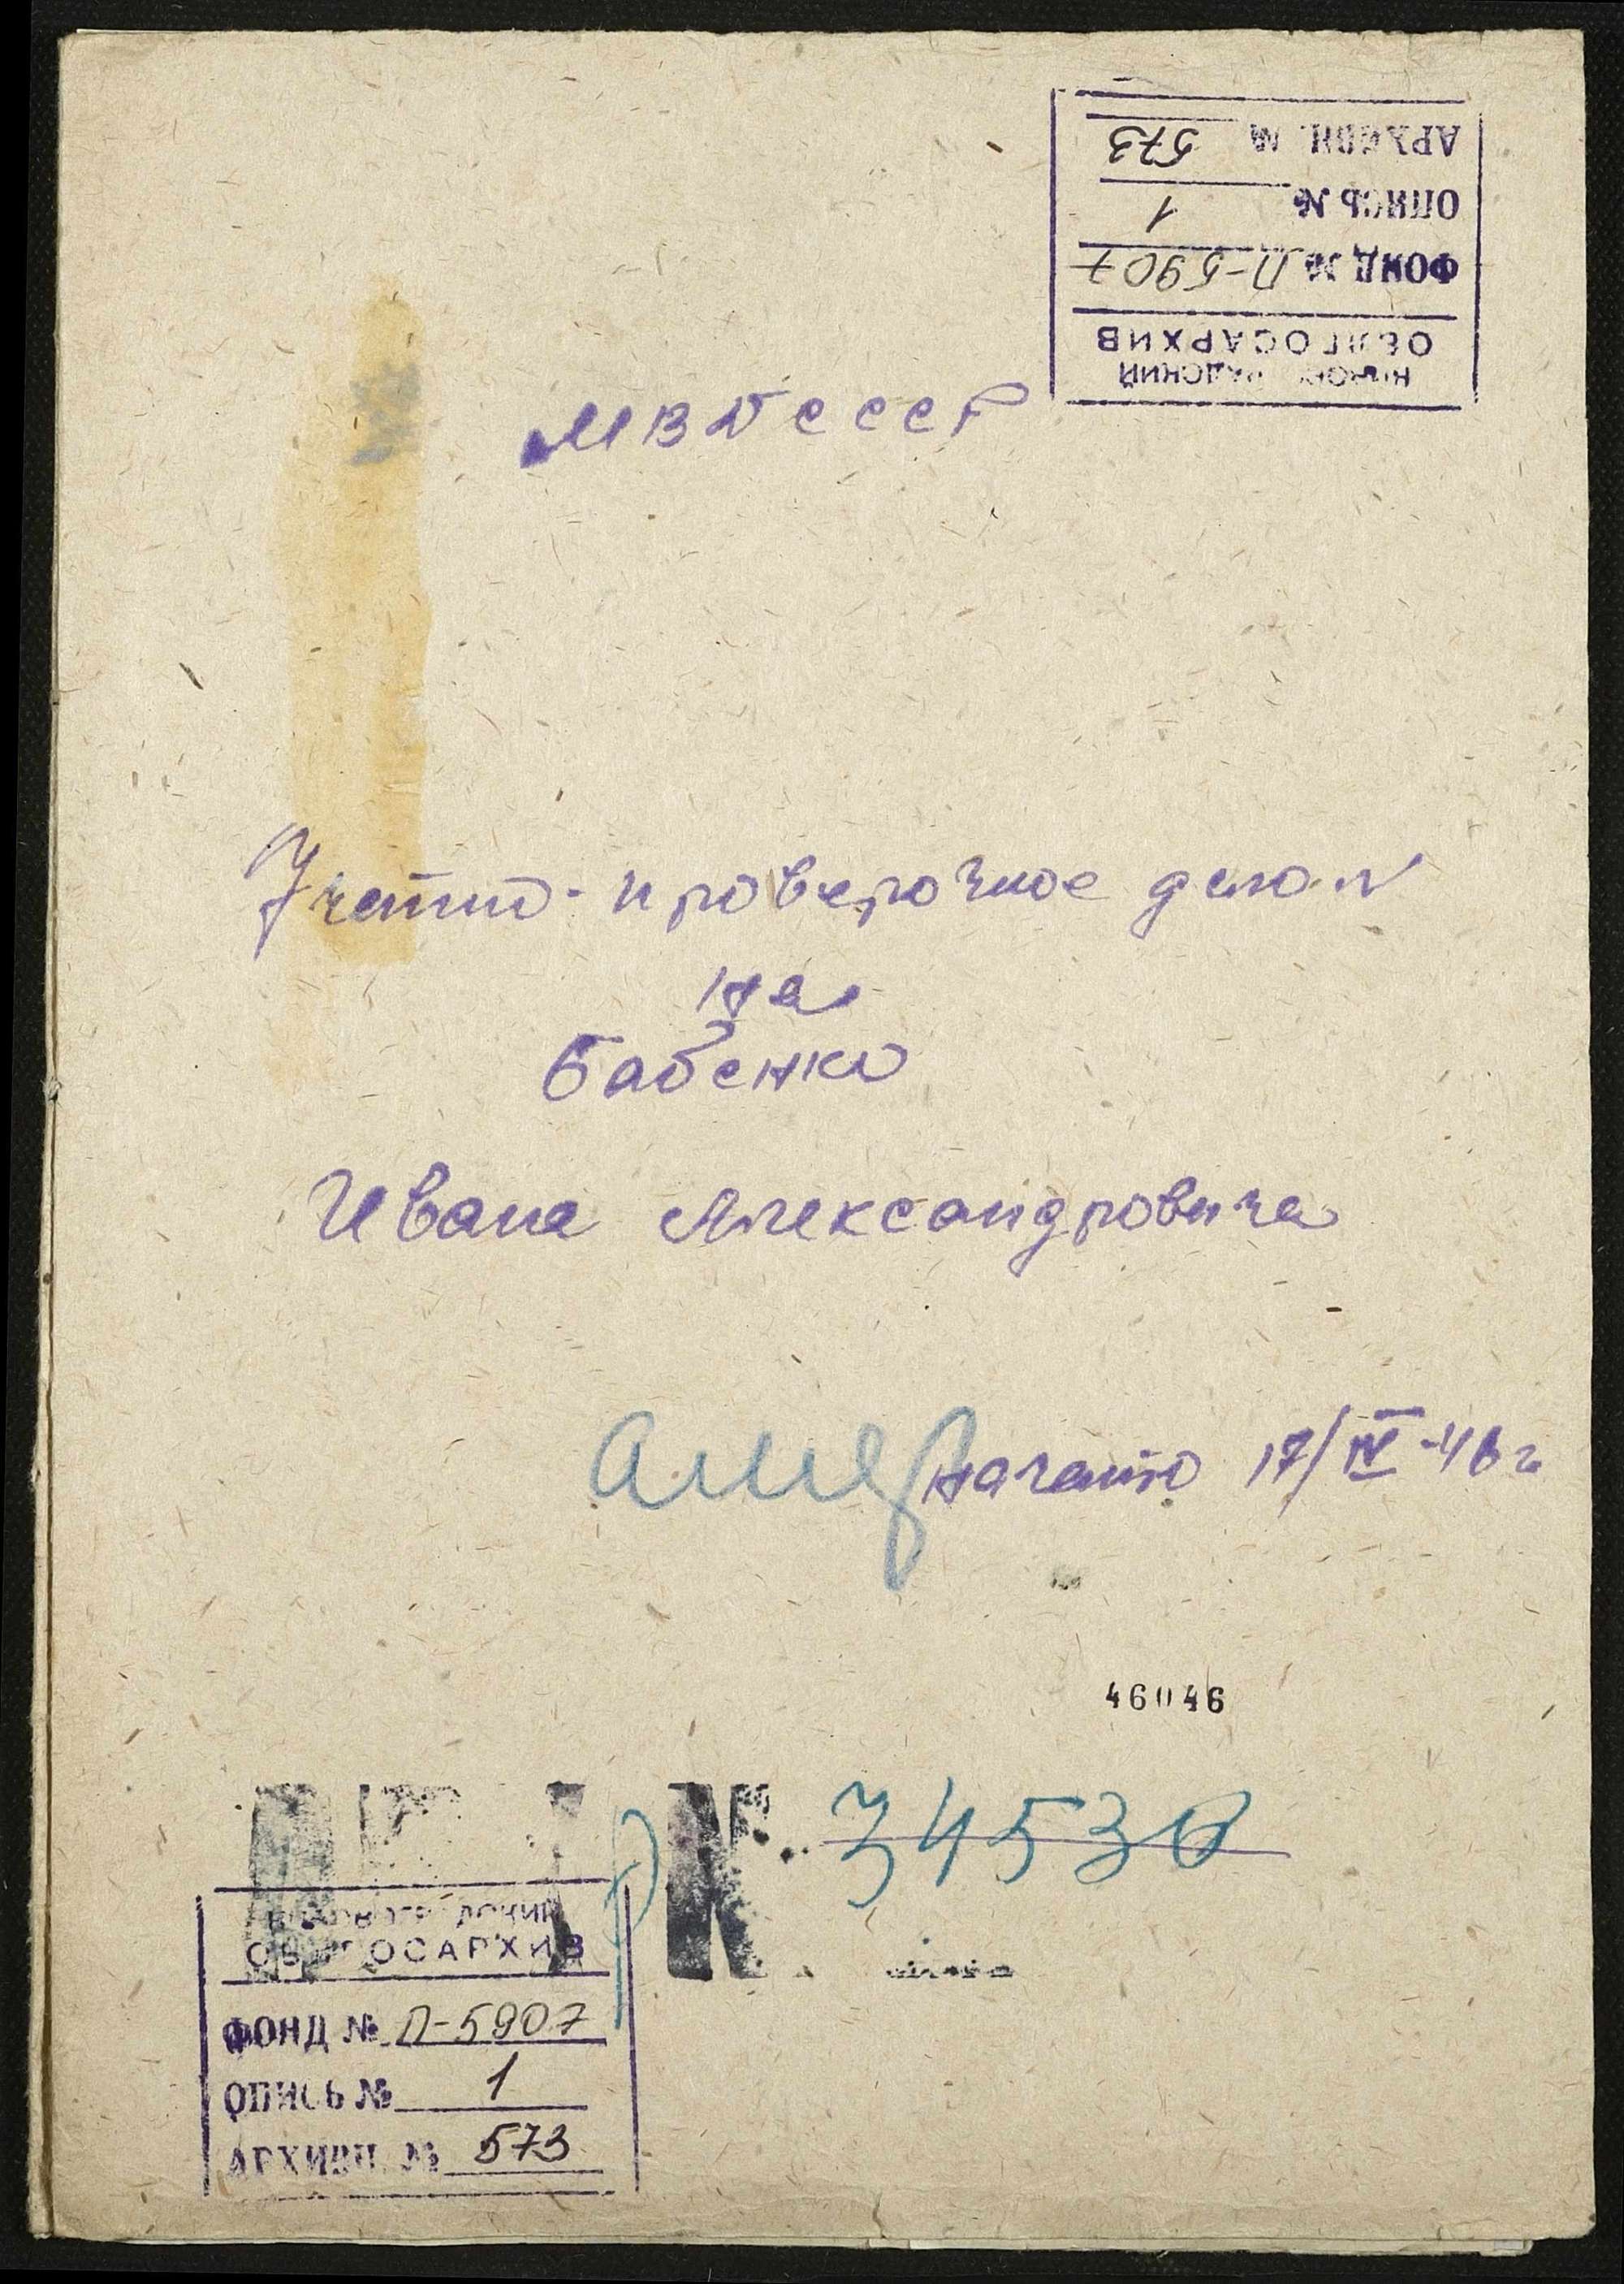 АРХИВН. № 573
ОПИСЬ № 1
ФОНД № П-5907
ОБЛГОСАРХИВ
КИРОВОГРАДСКИЙ
МВД СССР
Учетно-проверочное дело №
на
Бабенко
Ивана Александровича
Начато 17/IV-46 г
46046
34530
КИРОВОГРАДСКИЙ
ОБЛГОСАРХИВ
ФОНД № П-5907
ОПИСЬ № 1
АРХИВН. № 573